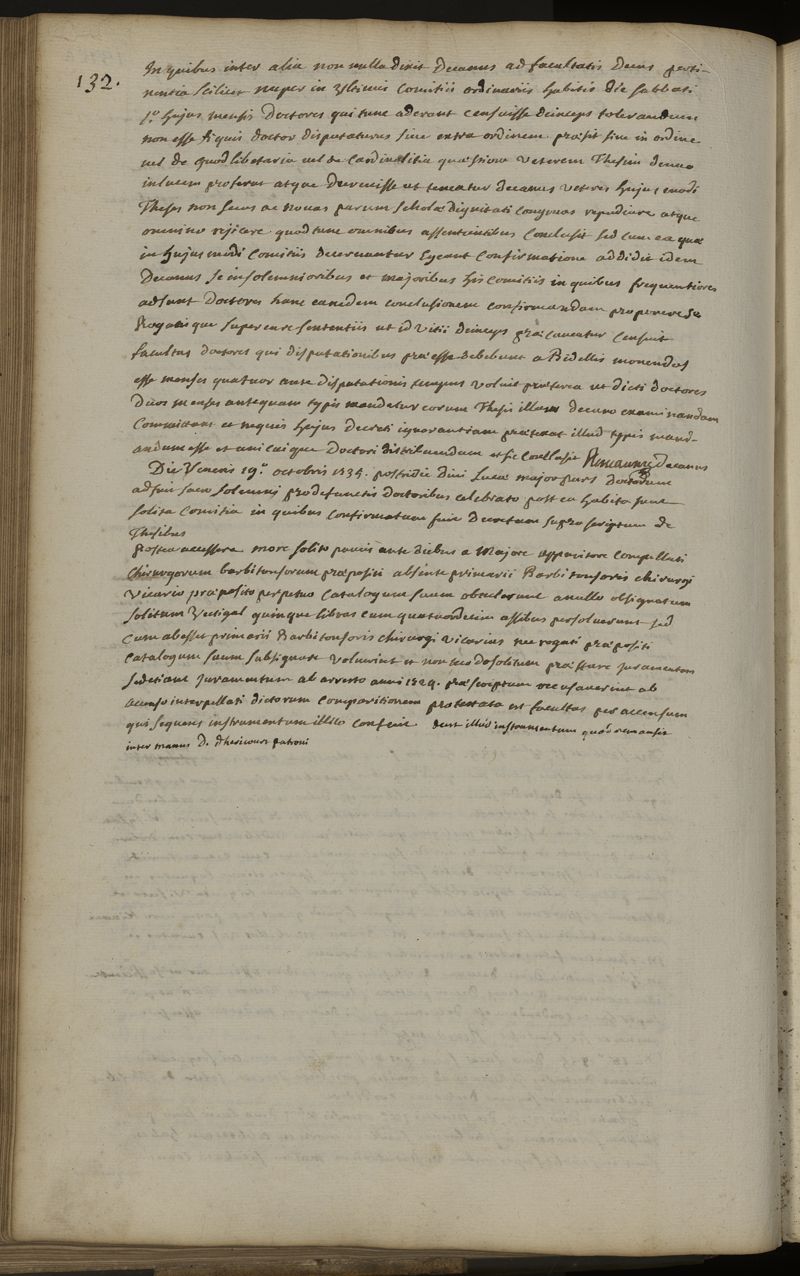 132.
In quibus inter alia non nulla dixit Decanus ad facultatis Decus perti-
nentia scilicet nuper in ultimis Comitiis ordinariis habitis die sabbati
1.º hujus mensis Doctores qui tunc aderant censuisse deinceps tolerandum
non esse si quis doctor disputaturus sive extra ordinem præsit sive in ordine
vel de quodlibetaria vel de Cardinalitia quæstione veterem Thesim denuo
in lucem proferat atque decrevisse ut teneatur decanus veteres hujus modi
Theses non secus ac novas parum scholæ dignitati congruas repudiare atque
omnino rejicere quod tunc omnibus assentientibus Conclusit sed cum ea quæ
in hujus modi Comitiis decernuntur egeant Confirmatione addidit idem
Decanus se in solemnioribus et majoribus his Comitiis in quibus frequentiores
adsunt Doctores hanc eamdem conclusionem confirmandam proponere se
Rogatisque super ea re sententiis ut id vitii deinceps præcaveatur Censuit
facultas doctores qui disputationibus præesse debebunt a Bidellis monendos
esse menses quatuor ante disputationis tempus voluit præterea ut dicti doctores
Duos menses antequam typis mandetur eorum Thesis illam decano examinandam
Committant et ne quis hujus Decreti ignorantiam prætexat illud typis mand-
andum esse et uni cuique Doctori distribuendum et sic Conclusit Reneaume Decanus
Die Veneris 19.ª octobris 1734. postridie divi Lucæ major pars doctorum
adfuit sacro solemni pro defunctis doctoribus celebrato post ea habita sunt
solita Comitia in quibus Confirmatum fuit Decretum supra scriptum de
Thesibus
Postea accessere more solito paucis ante diebus a Majore apparitore Compellati
Chirurgorum barbitonsorum præpositi absente primarii Barbitonsoris chirurgi
Vicario præposito perpetuo Catalogum suum obtulerunt anullo obsignatum
solitum Vectigal quinque libras cum quatuordecim assibus persolverunt sed
Cum abesset primarii Barbitonsoris chirurgi Vicarius nec rogati præpositi
Catalogum suum subsignare voluerint et non modo solitum præstare juramentum
sed etiam juramentum ab arresto anni 1724. præscriptum recusaverint ab
accenso interpellati dictorum Comparitionem protestata est facultas per accensum
qui sequens instrumentum illico Confecit deest illud instrumentum quod remansit
inter manus D. dhericourt patroni